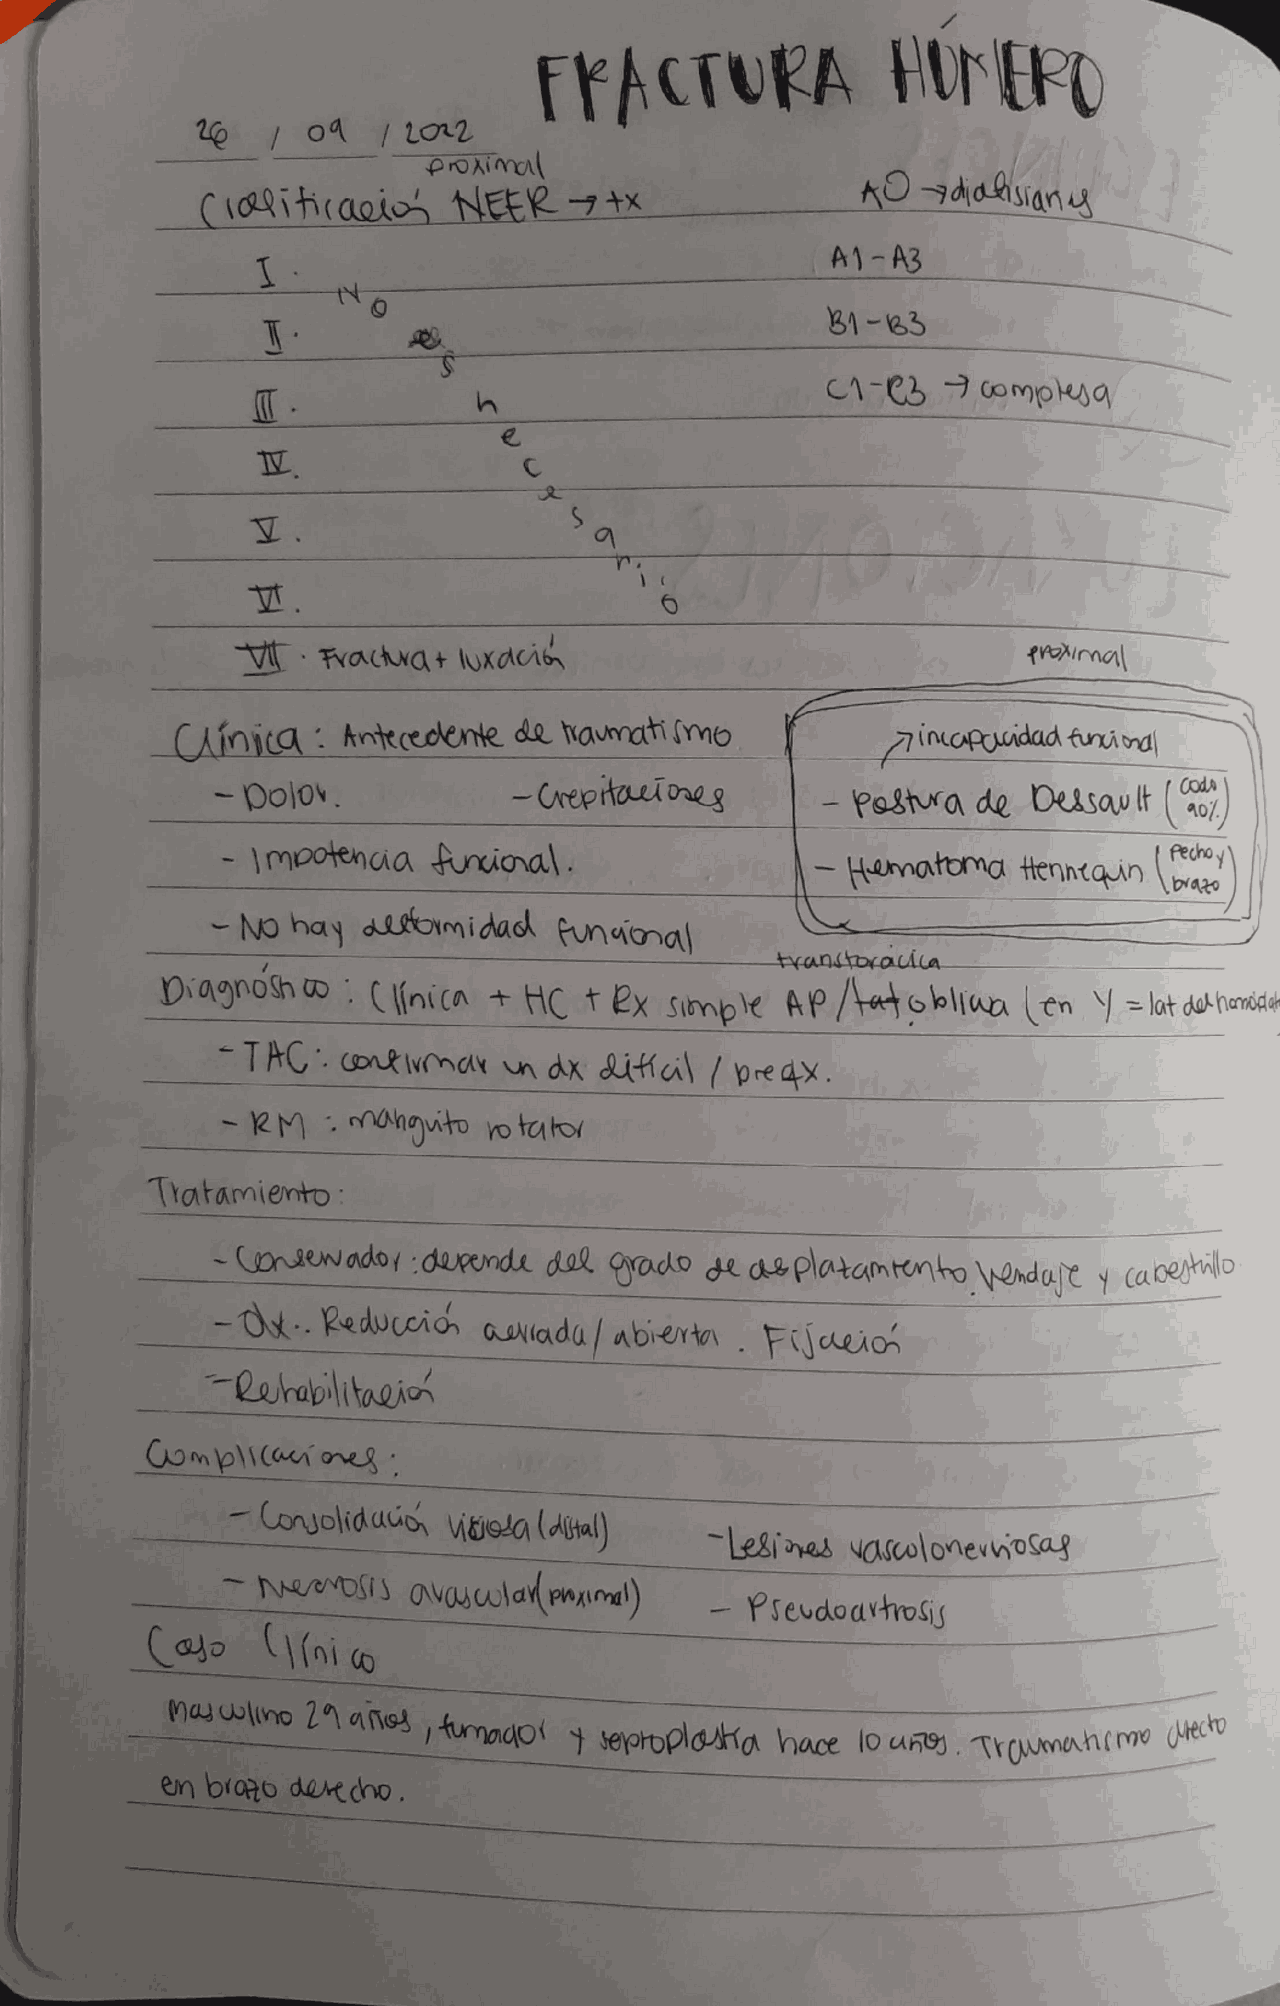 FRACTURA HÚMERO
26 / 09 / 2022
proximal
Clasificación NEER → tx
AO → diafisiarias
I. No es necesario
A1-A3
II.
B1-B3
III.
C1-C3 → compleja
IV.
V.
VI.
VII. Fractura + luxación
proximal
Clínica: Antecedente de traumatismo
→ incapacidad funcional
- Dolor. - Crepitaciones
- Postura de Dessault (codo 90%)
- Impotencia funcional.
- Hematoma Hennequin (Pecho y brazo)
- No hay deformidad funcional
transtorácica
Diagnóstico: Clínica + HC + Rx simple AP/lat oblicua (en Y = lat del
- TAC: confirmar un dx difícil / preqx.
- RM: manguito rotator
Tratamiento:
- Conservador: depende del grado de desplazamiento. Vendaje y cabestrillo
- Qx.. Reducción cerrada/abierta. Fijación
- Rehabilitación
Complicaciones:
- Consolidación viciosa (distal)
- Lesiones vasculonerviosas
- Necrosis avascular (proximal)
- Pseudoartrosis
Caso Clínico
Masculino 29 años, fumador y septoplastia hace 10 años. Traumatismo directo
en brazo derecho.